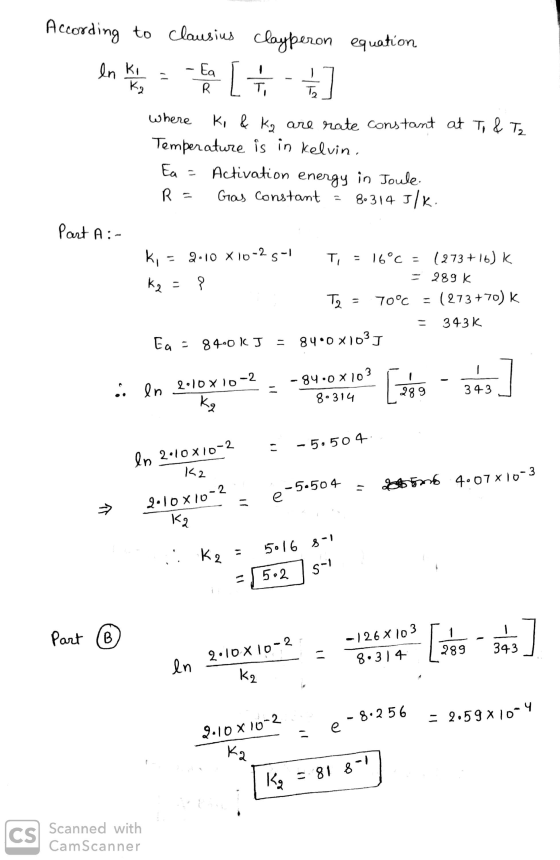 According to clausius clayperon equation
ln K₁/K₂ = - Ea/R [ 1/T₁ - 1/T₂ ]
where K₁ & K₂ are rate constant at T₁ & T₂
Temperature is in kelvin.
Ea = Activation energy in Joule.
R = Gas Constant = 8.314 J/K.
Part A :-
K₁ = 2.10 × 10⁻² s⁻¹ T₁ = 16°C = (273+16) K
= 289 K
K₂ = ? T₂ = 70°C = (273+70) K
= 343K
Ea = 84.0 KJ = 84.0 × 10³ J
∴ ln 2.10 × 10⁻²/K₂ = -84.0 × 10³/8.314 [ 1/289 - 1/343 ]
ln 2.10 × 10⁻²/K₂ = - 5.504
⇒ 2.10 × 10⁻²/K₂ = e^-5.504 = 4.07 × 10⁻³
∴ K₂ = 5.16 s⁻¹
= 5.2 s⁻¹
Part B
ln 2.10 × 10⁻²/K₂ = -126 × 10³/8.314 [ 1/289 - 1/343 ]
2.10 × 10⁻²/K₂ = e^-8.256 = 2.59 × 10⁻⁴
K₂ = 81 s⁻¹
CS Scanned with
CamScanner